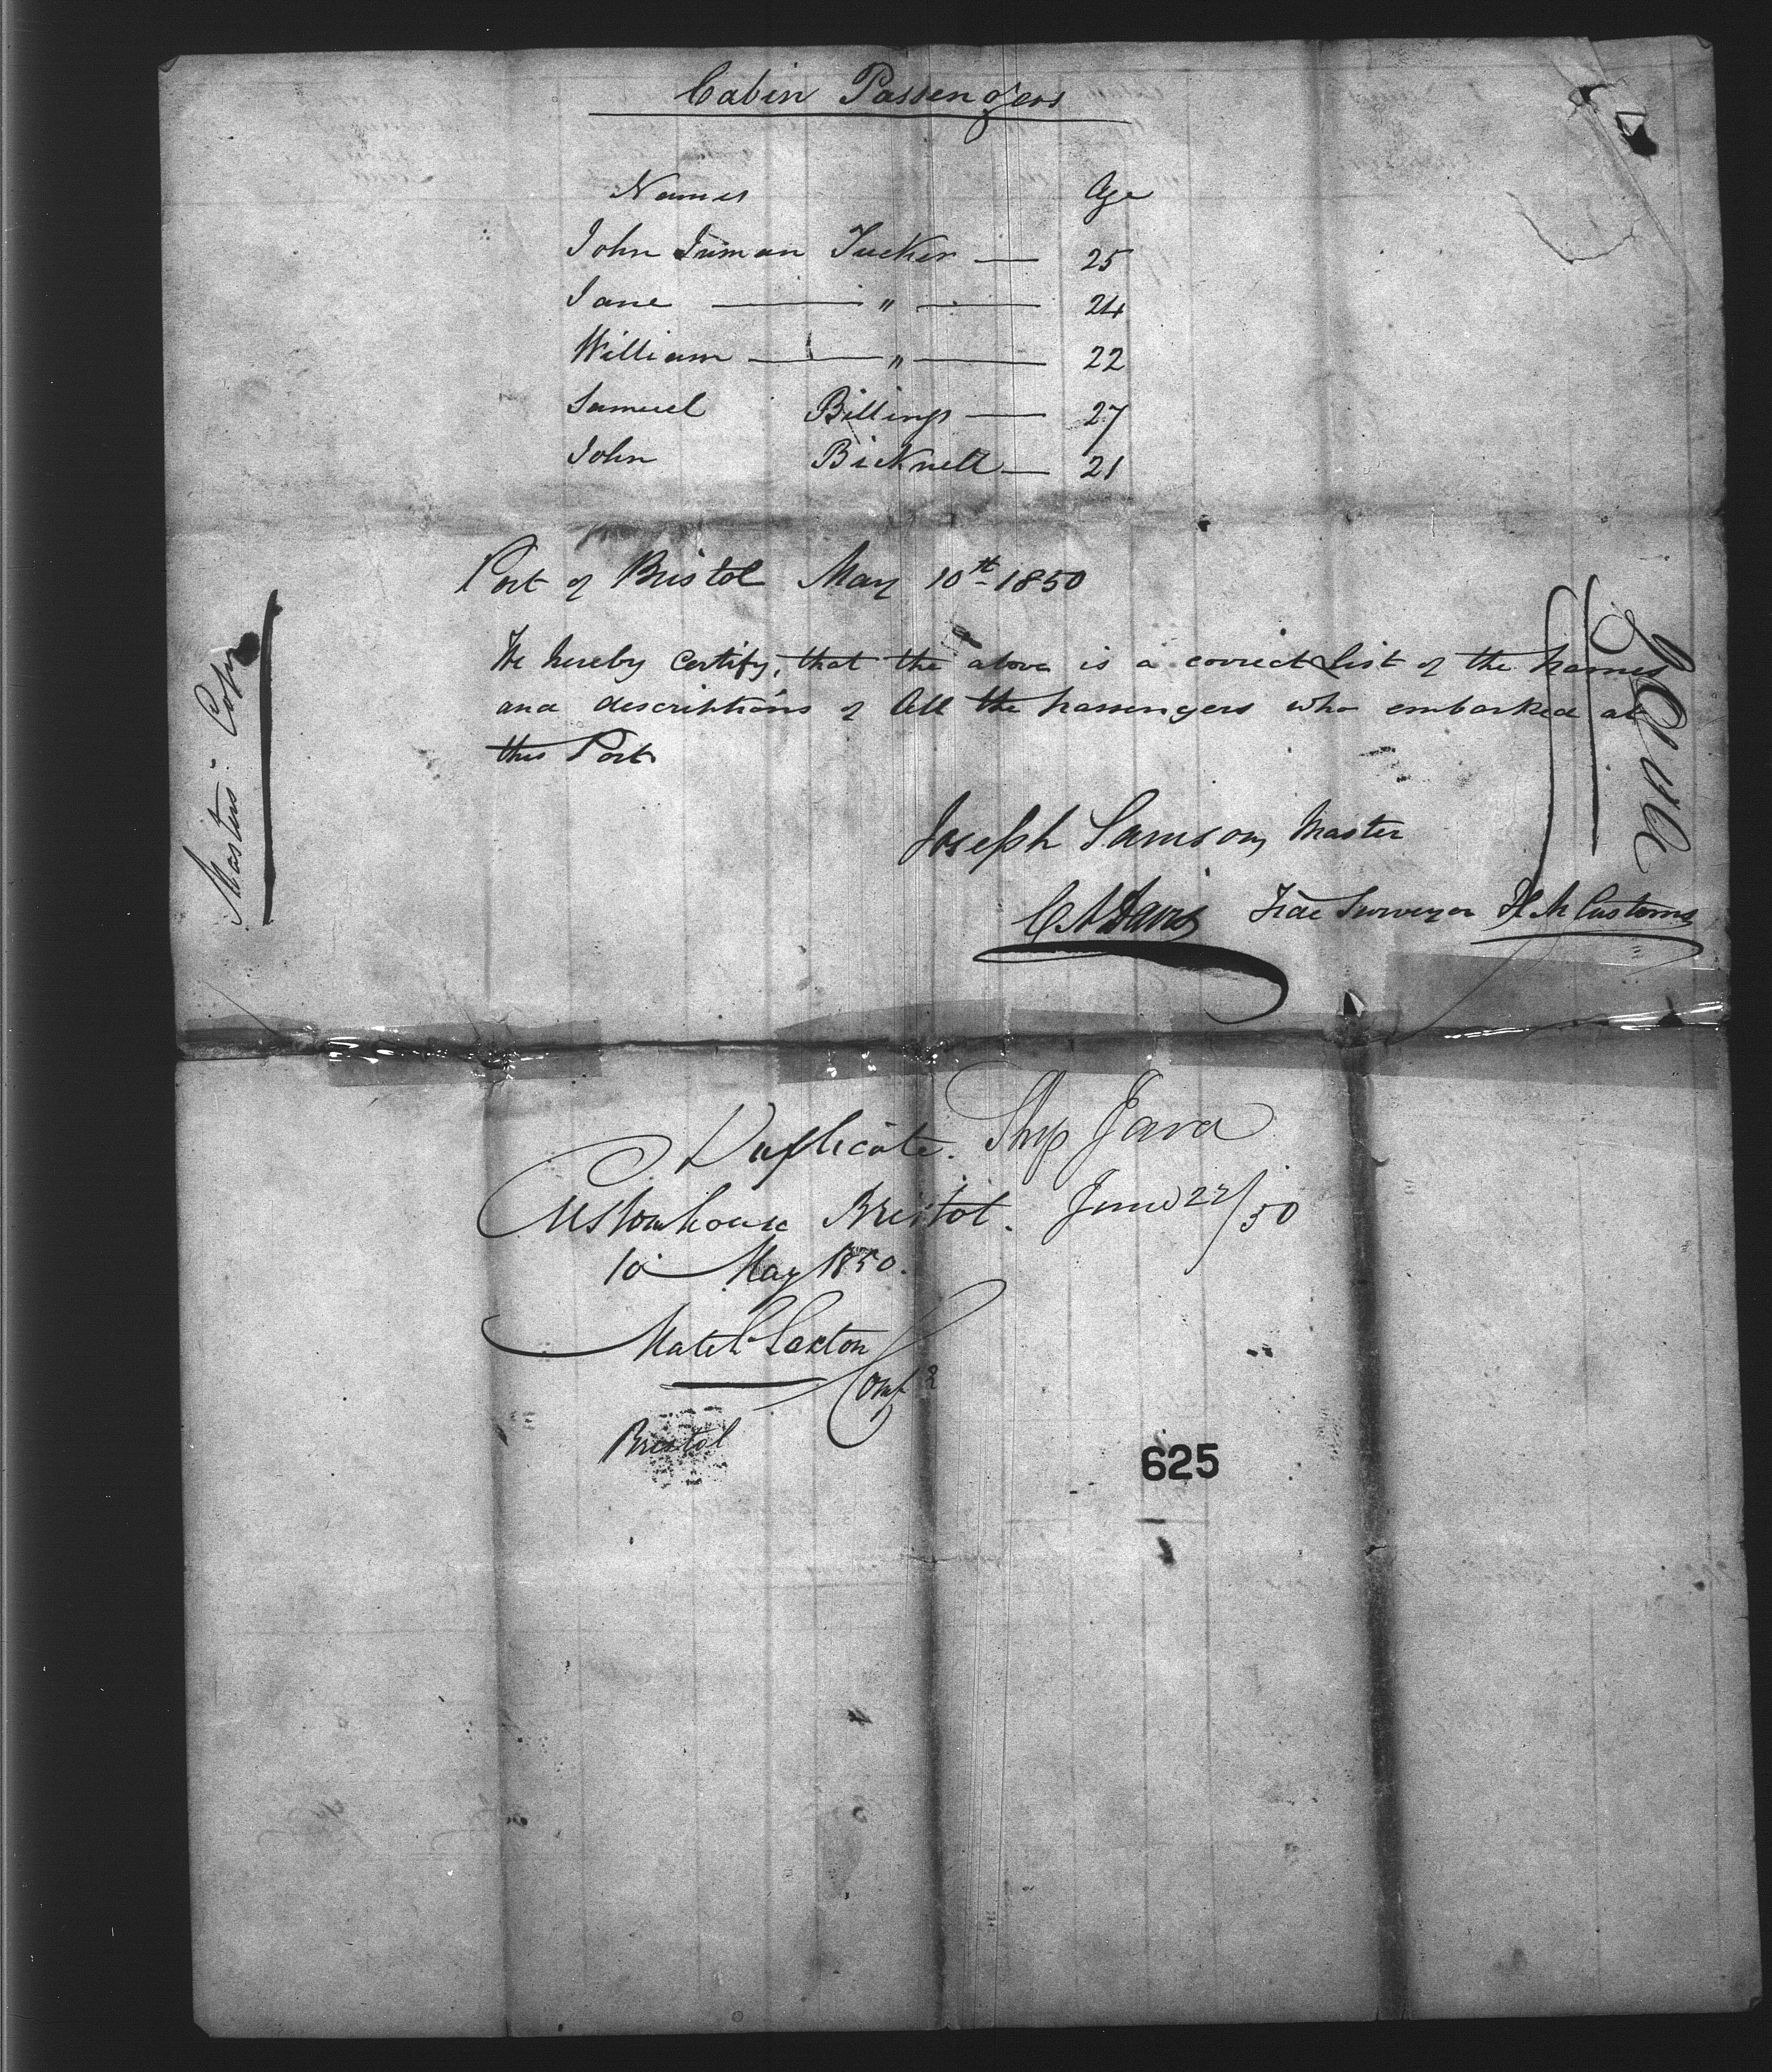 Cabin Passengers
Names Age
John Inman Tucker — 25
Jane — " — 24
William — " — 22
Samuel Billings — 27
John Bicknell — 21
Port of Bristol May 10th 1850
We hereby certify, that the above is a correct List of the names
and descriptions of All the passengers who embarked at
this Port
Joseph Samson Master
C A Davis Tide Surveyor H M Customs
Masters Copy
Duplicate. Ship Java
Customhouse Bristol. June 22/50
10 May 1850.
Bristol
625